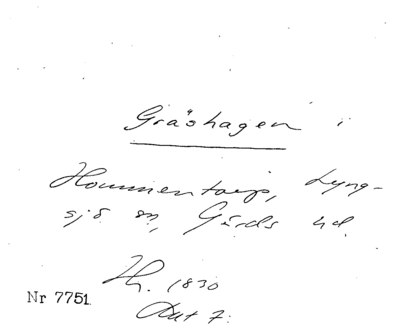 Gräshagen i
Hommentorp, Lyng-
sjö sn, Gärds hd.
Th. 1830
Akt 7.
Nr 7751